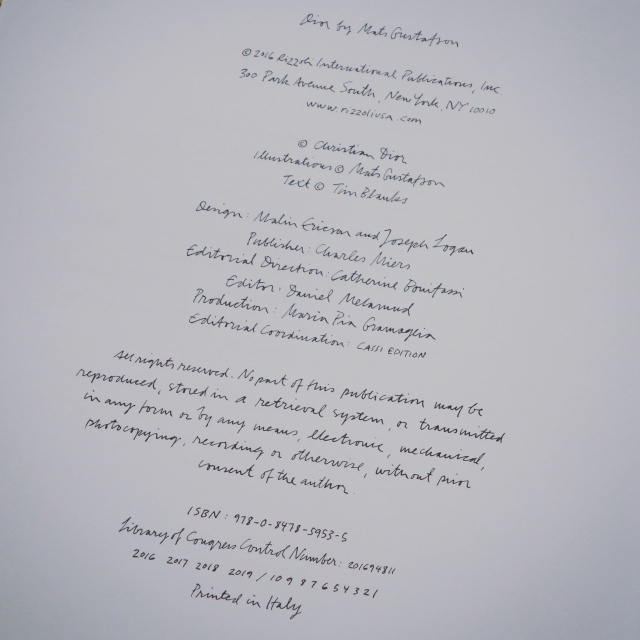 Dior by Mats Gustafson
© 2016 Rizzoli International Publications, Inc
300 Park Avenue South, New York, NY 10010
www.rizzoliusa.com
© Christian Dior
Illustrations © Mats Gustafson
Text © Tim Blanks
Design: Malin Ericson and Joseph Logan
Publisher: Charles Miers
Editorial Direction: Catherine Bonifassi
Editor: Daniel Melamud
Production: Maria Pia Gramaglia
Editorial Coordination: CASSI EDITION
All rights reserved. No part of this publication may be
reproduced, stored in a retrieval system, or transmitted
in any form or by any means, electronic, mechanical,
photocopying, recording or otherwise, without prior
consent of the author.
ISBN: 978-0-8478-5953-5
Library of Congress Control Number: 201694811
2016 2017 2018 2019 / 10 9 8 7 6 5 4 3 2 1
Printed in Italy